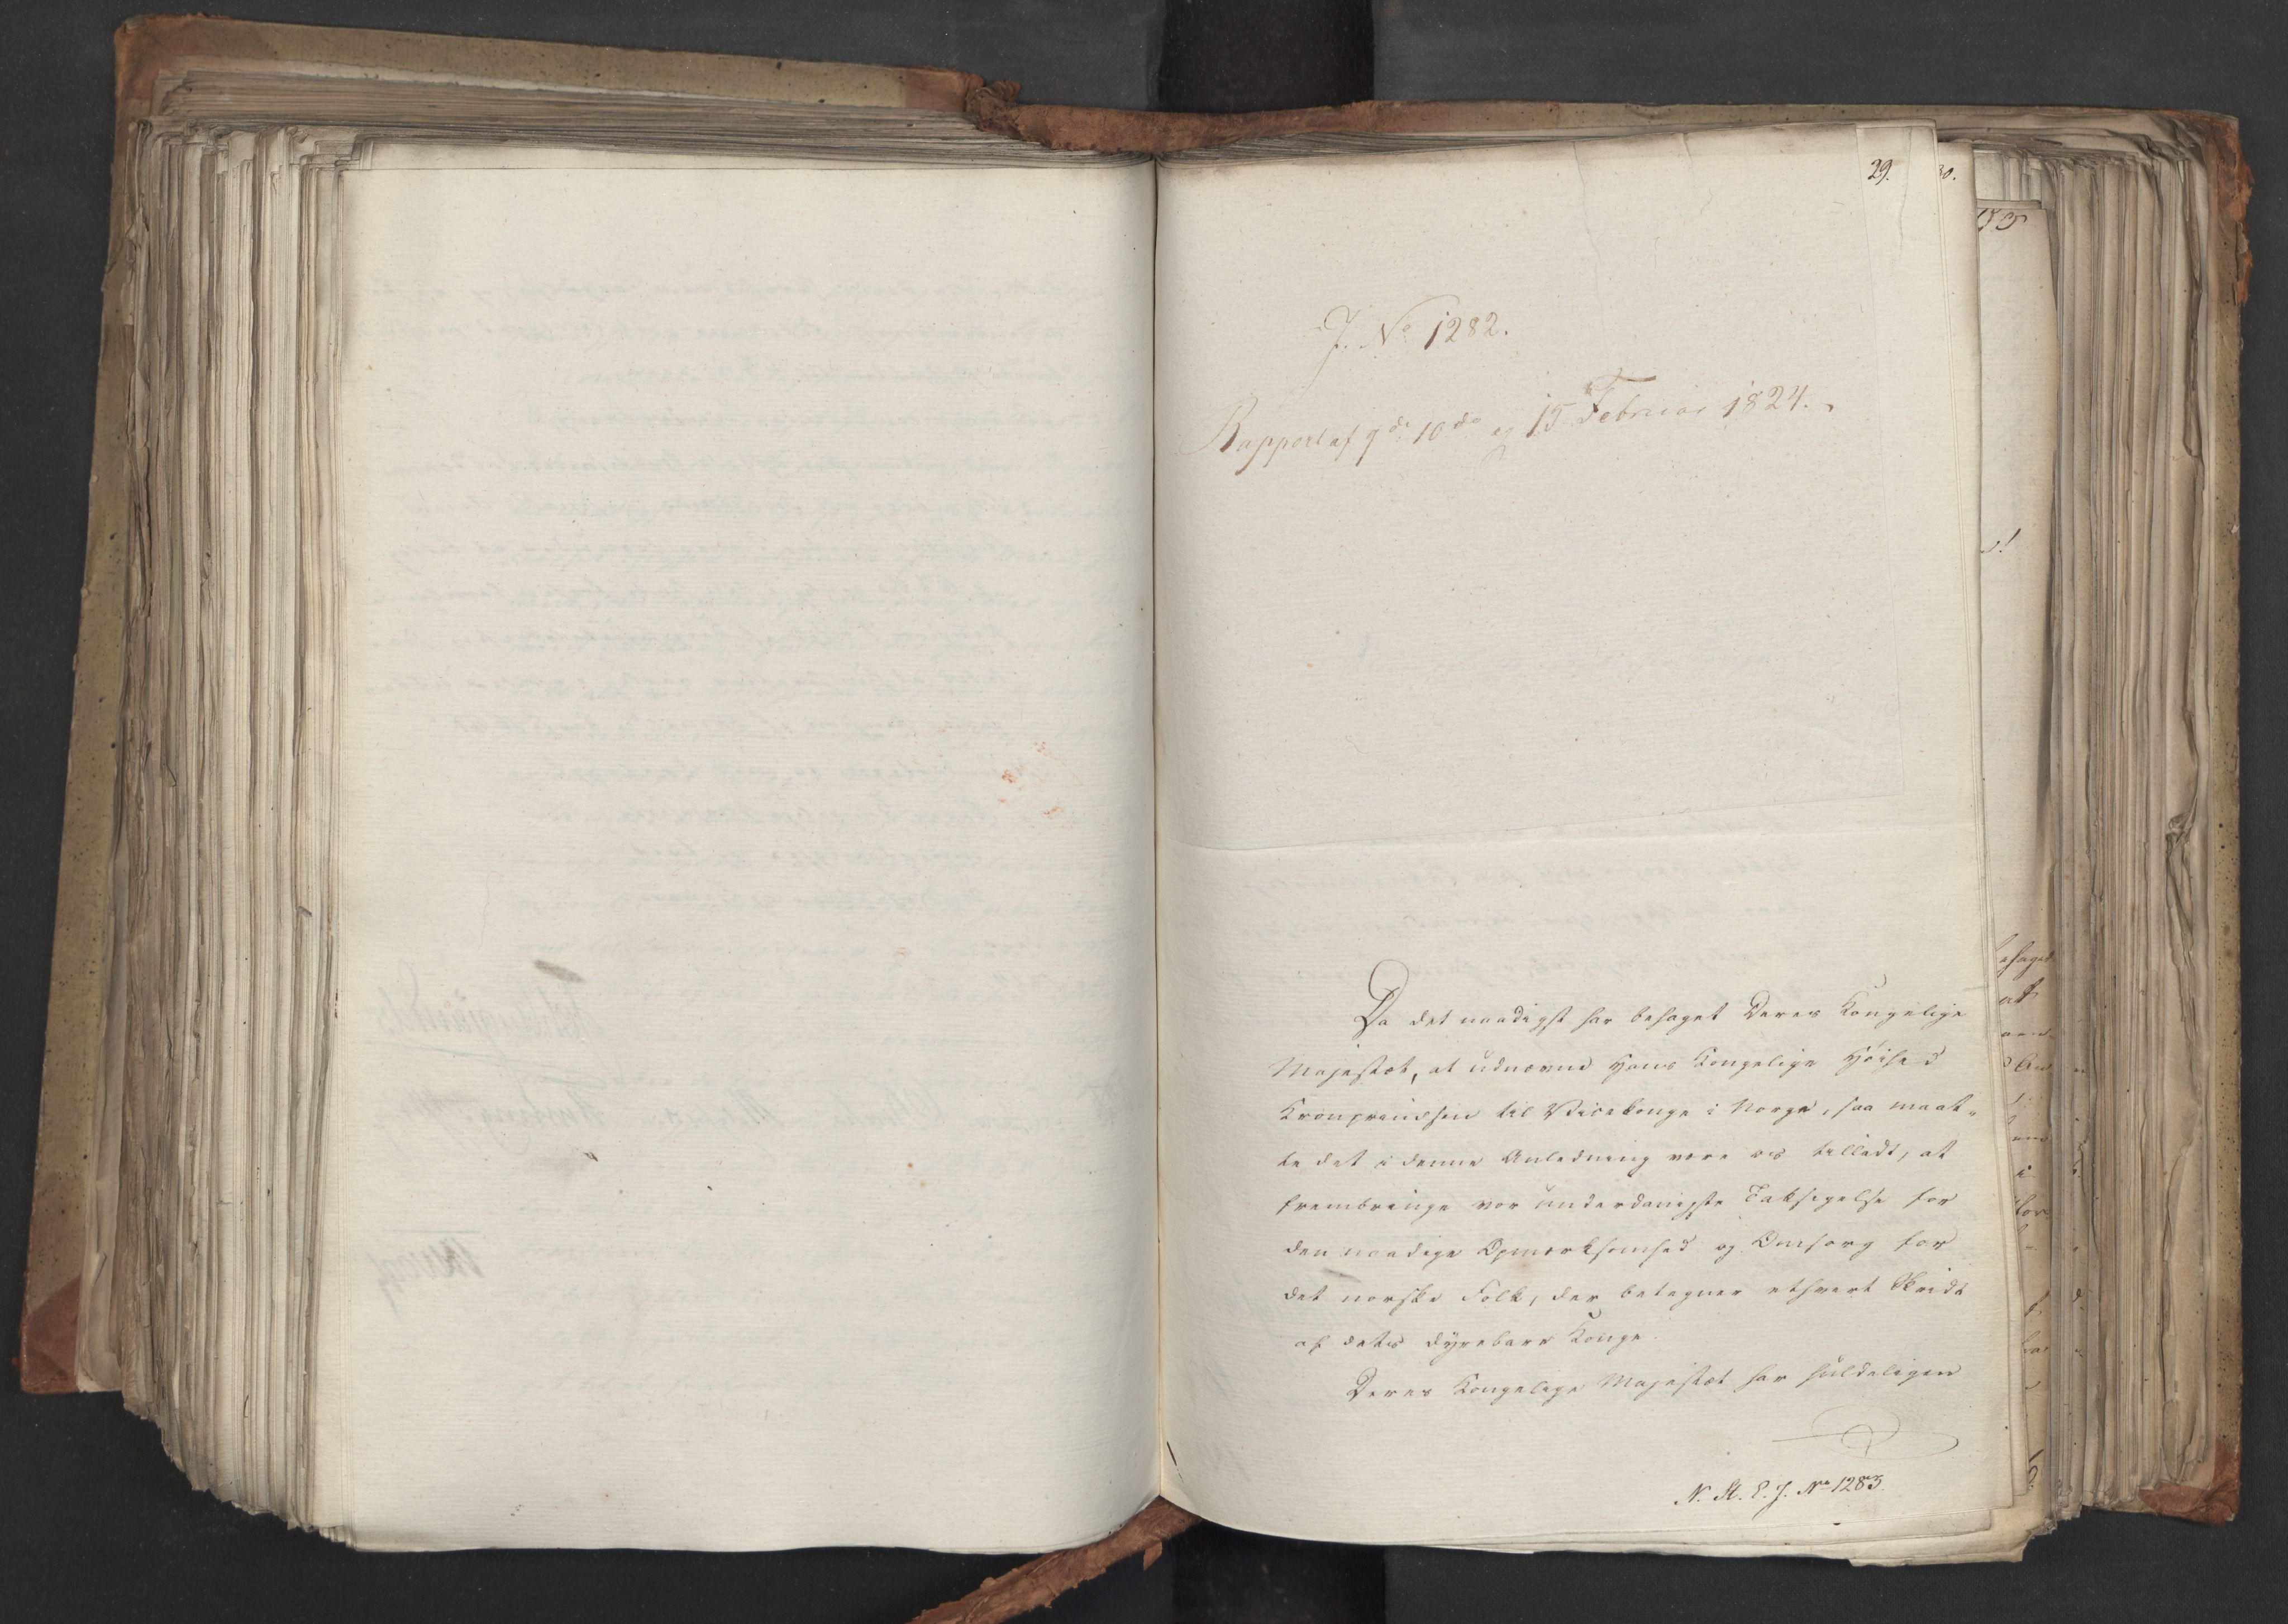 29.
30.
J. No 1282.
Rapport af 9de 10de og 15 Februar 1824.
Da det naadigst har behaget Deres Kongelige
Majestæt, at udnævne Hans Kongelige Høihed
Kronprindsen til Vicekonge i Norge, saa maat-
te det i denne Anledning være os tilladt, at
frembringe vor underdanigste Taksigelse for
den naadige Opmærksomhed og Omsorg for
det norske Folk, der betegner ethvert Skridt
af dets dyrebare Konge.
Deres Kongelige Majestæt har huldeligen
N. St. E. J. No 1283.